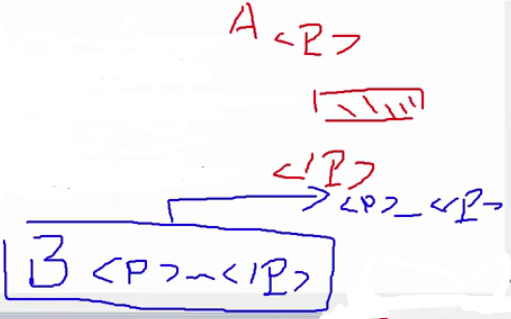 A <P>
</P>
<P>_</P>
B <P>~</P>